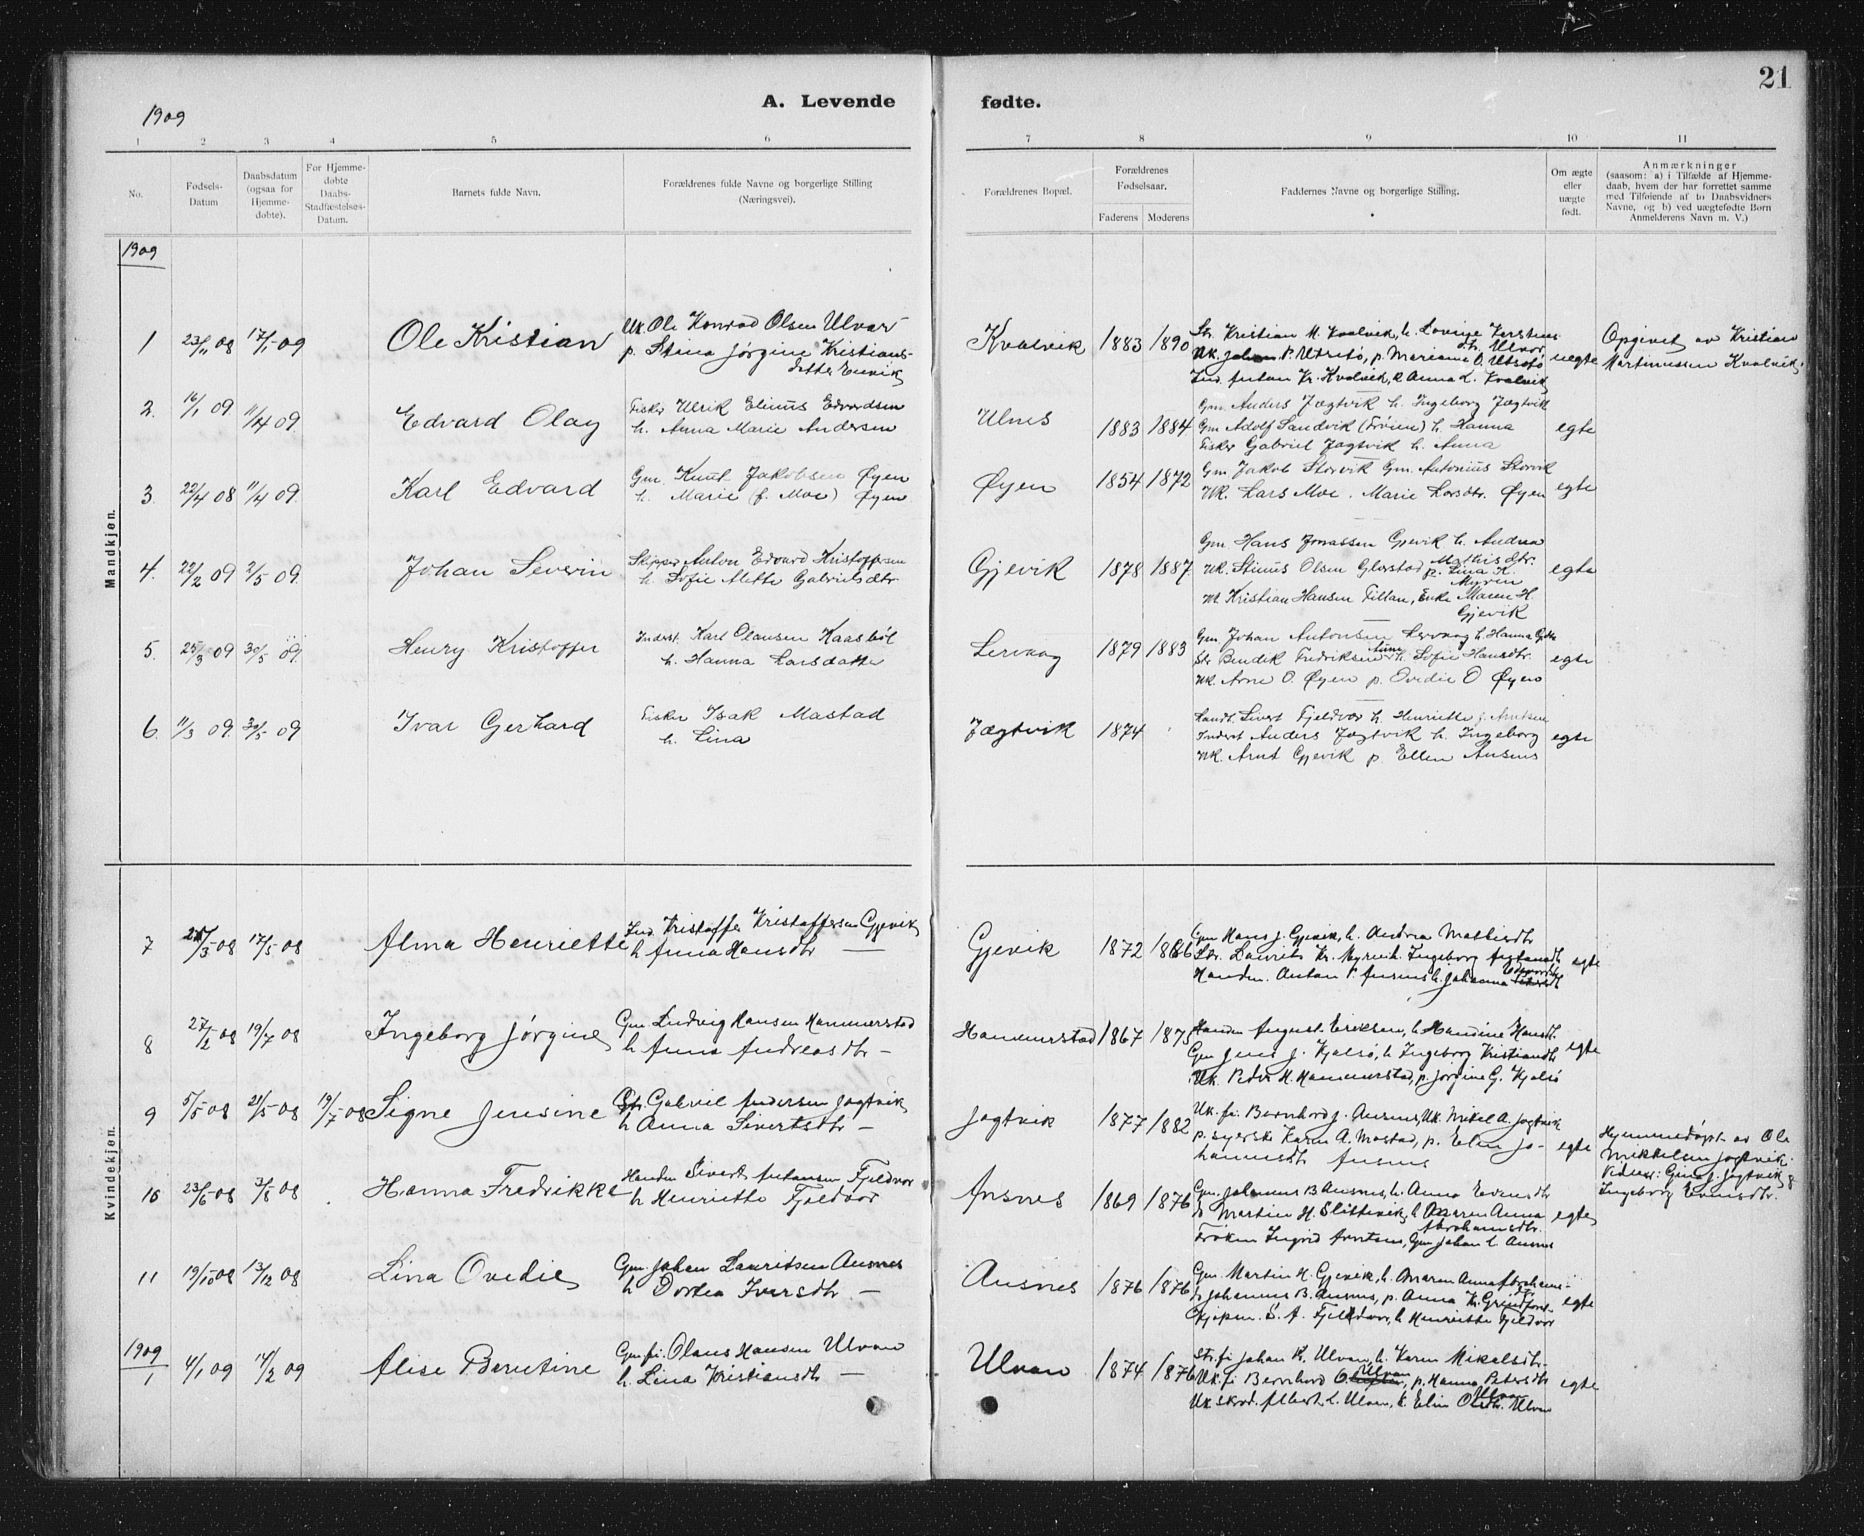 21
1909
A. Levende fødte.
1 2 3 4 5 6 7 8 9 10 11
No.
Fødsels-
Datum
Daabsdatum
(ogsaa for
Hjemme-
døbte).
For Hjemme-
døbte
Daabs-
Stadfæstelses-
Datum.
Barnets fulde Navn.
Forældrenes fulde Navne og borgerlige Stilling
(Næringsvei).
Forældrenes Bopæl.
Forældrenes
Fødselsaar.
Faderens Moderens
Faddernes Navne og borgerlige Stilling.
Om ægte
eller
uægte
født.
Anmærkninger
(saasom: a) i Tilfælde af Hjemme-
daab, hvem der har forrettet samme
med Tilføiende af to Daabsvidners
Navne, og b) ved uægtefødte Børn
Anmelderens Navn m. V.)
Mandkjøn.
1909
1 23/11 08 17/1-09 Ole Kristian
Uk. Ole Konrad Olsen Ulvar
p. Stina Jørgine Kristians-
datter Ervik
Kvalvik 1883 1890
Str. Kristian M. Kvalvik, h. Lovise Karstens
dtr. Ulvar
Uk. Johan P. Utsetø, p. Mariane O. Utsetø
Ind. Anton Kr. Kvalvik, p. Anna L. Kvalvik
uegte
Opgivet av Kristian
Martinussen Kvalvik.
2. 16/1 09 11/4 09. Edvard Olay
Fisker Ulrik Elinus Edvardsen
h. Anna Marie Andersen
Ulnes 1883 1884
Gm. Anders Jægtvik h. Ingeborg Jægtvik
Gm Adolf Sandvik (Frøien) h. Hanna
Fisker Gabriel Jægtvik h. Anna
egte
3. 22/4 08 11/4 09. Karl Edvard
Gm. Knut Jakobsen Øyen
h. Marie (f. Moe) Øyen
Øyen 1854 1872
Gm Jakob Storvik Gm. Antonius Storvik
Uk. Lars Moe. Marie Larsdtr. Øyen
egte
4. 22/2 09 2/5 09. Johan Severin
Skipper Anton Edvard Kristoffersen
h. Sofie Mette Gabrielsdtr
Gjevik 1878 1887
Gm Hans Jonassen Gjevik h. Andrea
Mathisdtr.
Uk. Stinus Olsen Glørstad p. Lina K.
Myren
Uk Kristian Hansen Fillan, Enke Maren H.
Gjevik
egte
5. 25/3 09 30/5 09. Henry Kristoffer
Inderst. Karl Olausen Kaasbøl
h. Hanna Larsdatter
Lervaag 1879 1883
Gm Johan Antonsen Lervaag h. Hanna
Str Bendik Fredriksen h. Sofie Hansdtr.
Uk. Arne O. Øyen p. Ovedie O Øyen
egte
6. 11/3 09. 30/5-09 Ivar Gerhard
Fisker Isak Mastad
h. Lina
Jægtvik 1874
Landh. Sivert Fjeldvær h. Henriette f. Arntsen
Inderst Anders Jægtvik h. Ingeborg
Uk. Arnt Gjevik p. Ellen Ansnes
egte
Kvindekjøn.
7 /3-08 17/5-08 Alma Henriette
Ind. Kristoffer Kristoffersen Gjevik
h Anna Hansdtr —
Gjevik 1872 1886
Gm Hans J. Gjevik, h. Andrea Mathisdtr
Str. Laurits Kr. Myren h. Ingeborg
Handm. Anton P. Ansnes h. Johanna
egte
8 27/2-08 19/7-08 Ingeborg Jørgine
Gm Ludvig Hansen Hammerstad
h Anna Andreasdtr —
Hammerstad 1867 1875
Handm August Eriksen, h Handine Hansdtr.
Gm Jens J. Kjølsø, h Ingeborg Kristiansdtr
Uk. Peder H. Hammerstad, p. Jørgine G. Kjølsø
egte
9 5/5-08 21/5-08 19/7-08 Signe Jensine
Str Gabriel Andersen Jøgtvik
h Anna Sivertsdtr —
Jøgtvik 1877 1882
Uk. fi. Bernhard J. Ansnes, Uk. Mikal A. Jøgtvik
p. syerske Karen A. Mastad, p. Elen Jo-
hannesdtr Ansnes
egte
Hjemmedøpt av Ole
Mikkelsen Jøgtvik.
Vidner: Gina J. Jøgtvik &
Ingeborg Evensdtr.
10 23/6-08 3/8-08 Hanna Fredrikke
Handm Sivert Antonsen Fjeldvær
h Henriette Fjeldvær
Ansnes 1869 1876
Gm. Johannes B Ansnes, h. Anna Evensdtr
Martin H. Slittevik, h Maren Anna
Abrahamsdtr.
Frøken Ingrid Arntsen, Gm Johan L. Ansnes
egte
11 19/10-08 13/12 08 Lina Ovedie
Gm. Johan Lauritsen Ansnes
h Dortea Iversdtr —
Ansnes 1876 1876
Gm. Martin H. Gjevik, h. Maren Anna Abrahams-
dtr
Johannes B. Ansnes, p. Anna K.
Kjøpm. S. A. Fjeldvær, h Henriette Fjeldvær
egte
1909
1 4/1 09 14/2 09 Alise Berntine
Gm fi. Olaus Hansen Ulvan
h. Lina Kristiansdtr —
Ulvan 1874 1876
Str. fi Johan K. Ulvan, h. Karen Mikalsdtr.
Uk. fi Bernhard O. Ulvan, p. Hanna Petersdtr
Ulvan
Uk skred. Albert L. Ulvan, h. Elin Olsdtr. Ulvan
egte